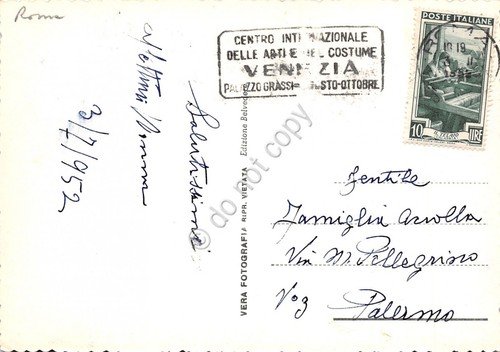 Roma
CENTRO INTERNAZIONALE
DELLE ARTI E DEL COSTUME
VENEZIA
PALAZZO GRASSI - AGOSTO-OTTOBRE
POSTE ITALIANE
10 LIRE
Salutissimi
3/7/952
VERA FOTOGRAFIA RIPR. VIETATA Edizione Belvedere
do not copy
Gentile
Famiglia
Via M. Pellegrino
No 3
Palermo